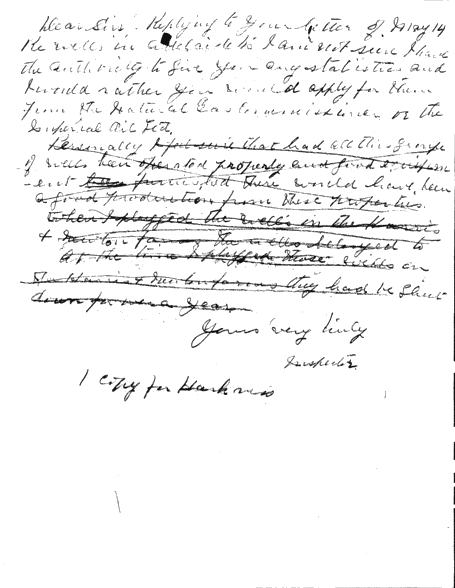 Dear Sirs: Replying to your letter of May 14
Re wells in Adelaide Tp I am not sure I have
the authority to give you any statistics and
I would rather you would apply for them
from the Natural Gas Commissioner or the
Imperial Oil Ltd.
Personally I feel sure that had all this group
of wells been operated properly and good equipm
-ent been furnished there would have been
a good production from these properties.
When I plugged the wells in the Harris
& Newton farms the wells belonged to
At the time I plugged these wells on
the Harris & Newton farms they had be shut
down for over a year
Yours very truly
Inspector
1 copy for Harkness